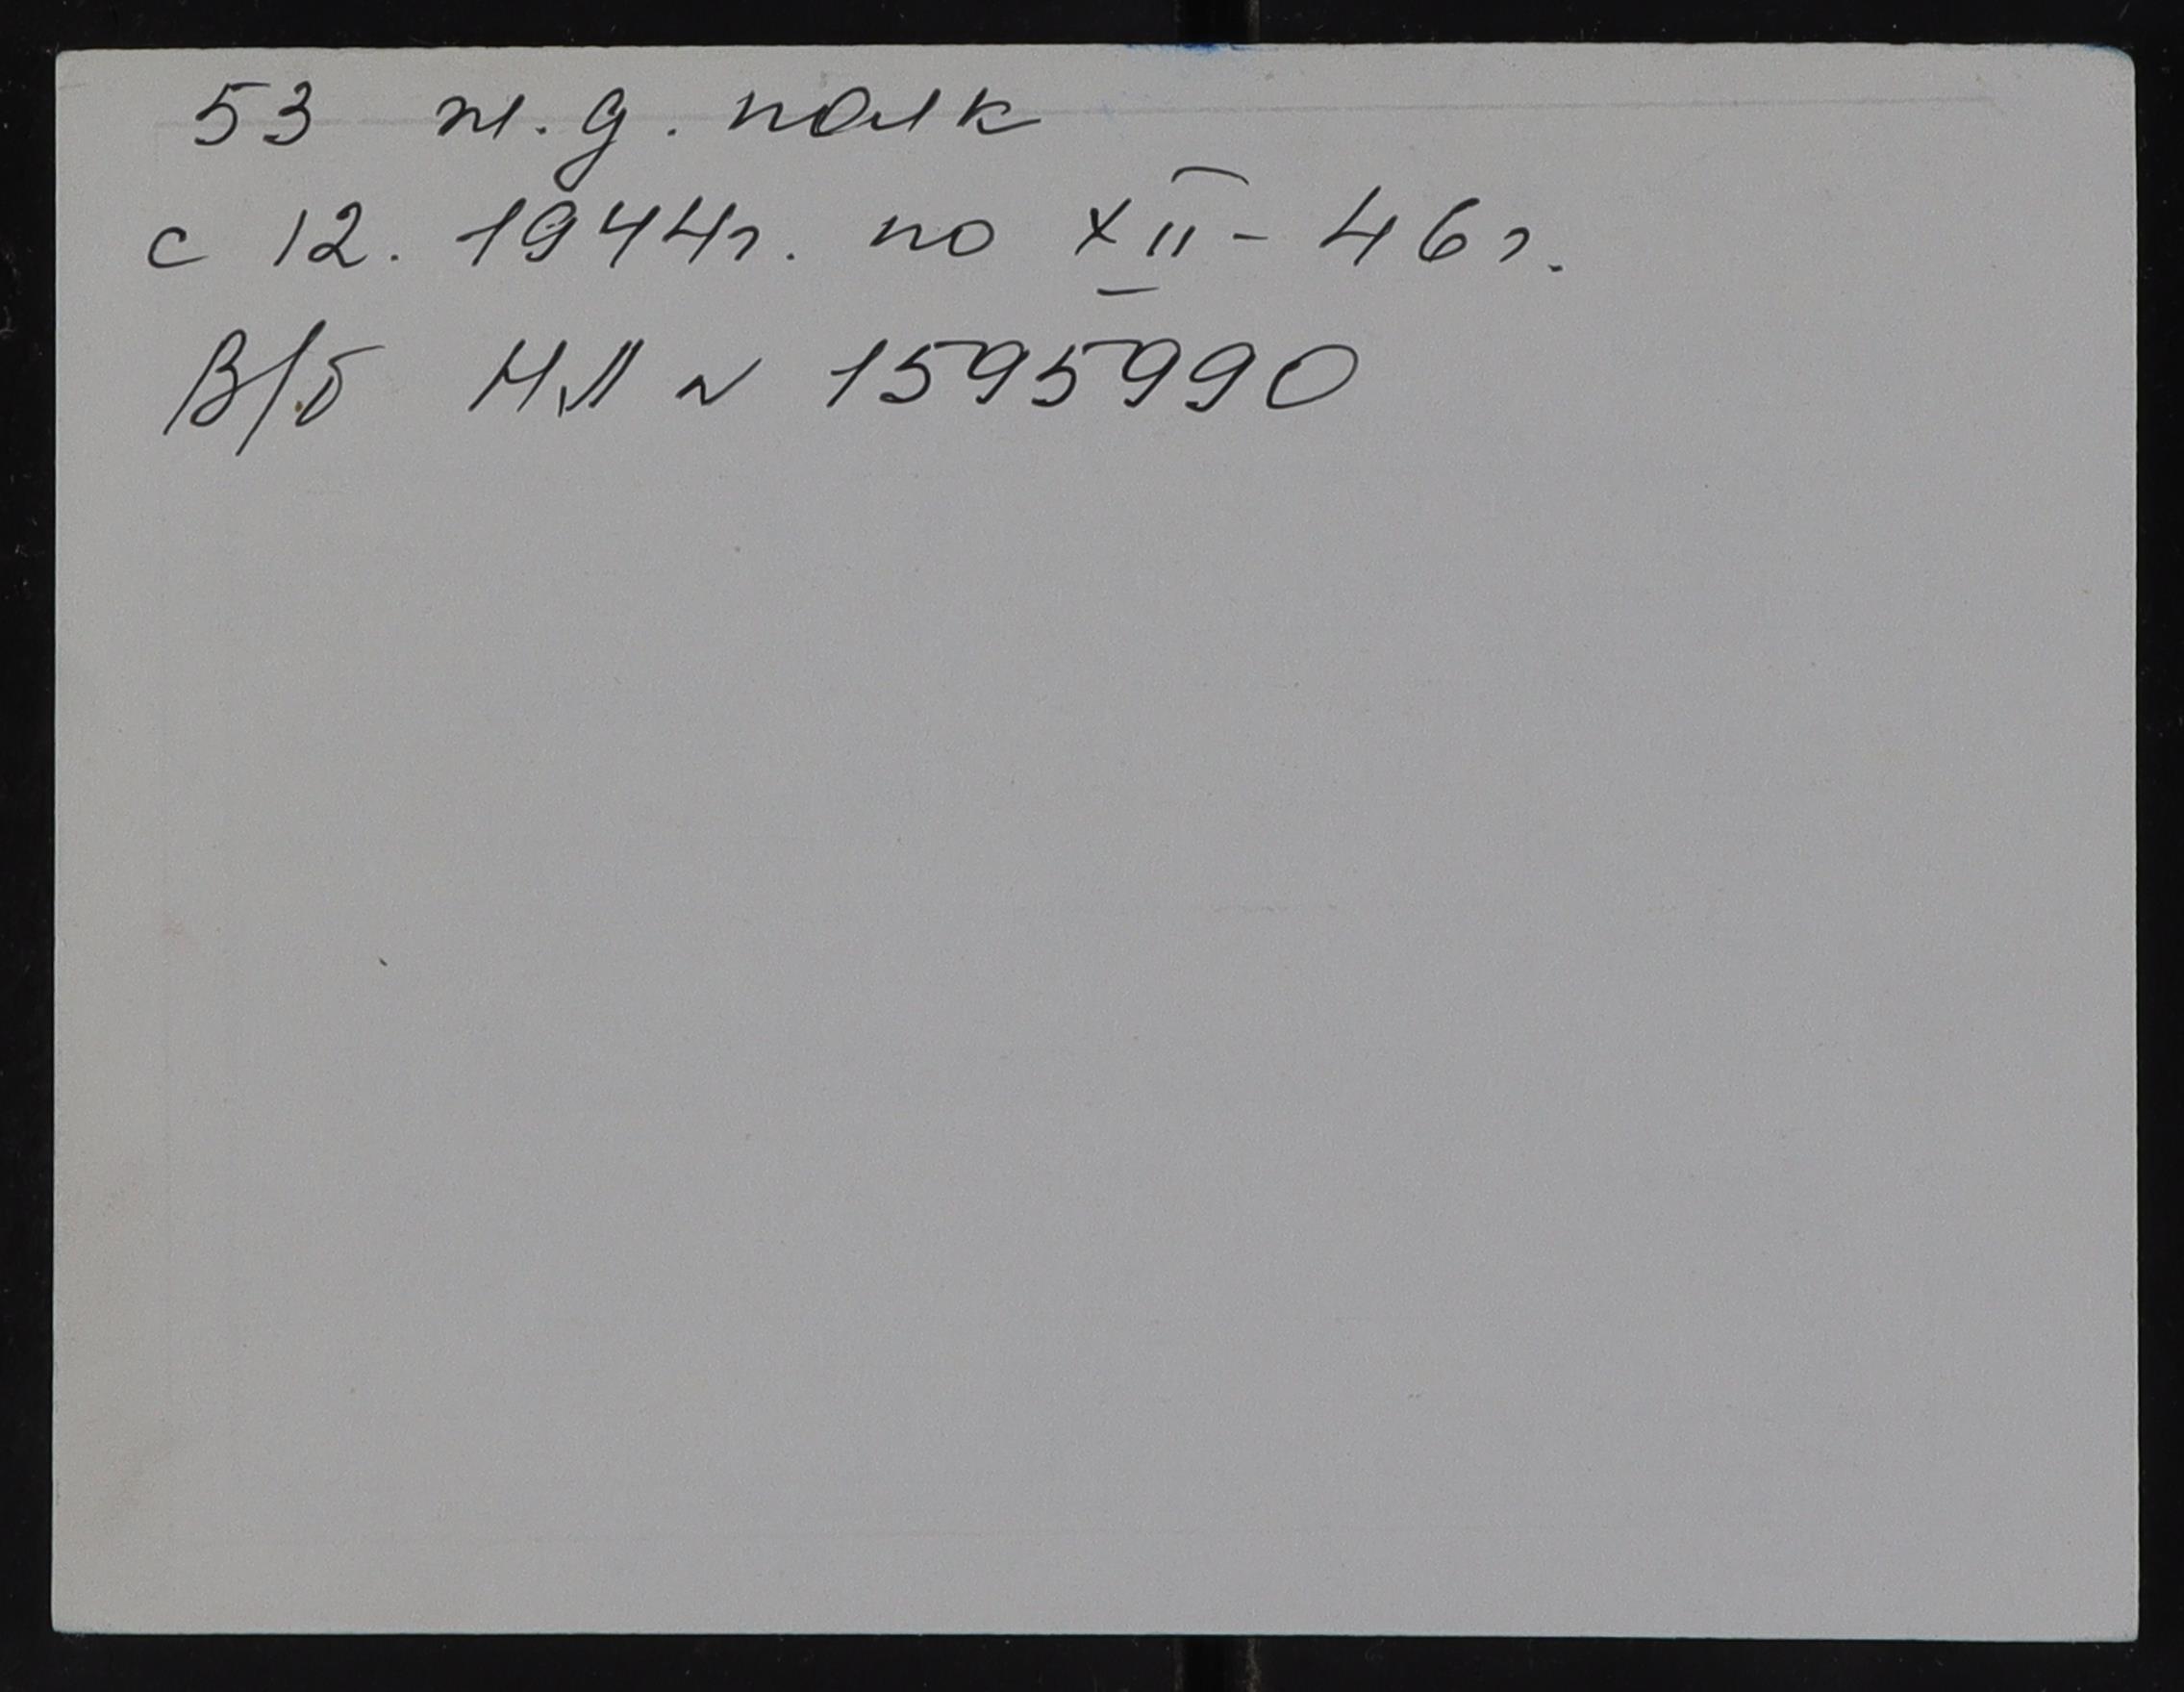 53 ж.д. полк
с 12. 1944г. по XII - 46г.
В/б НЛ № 1595990